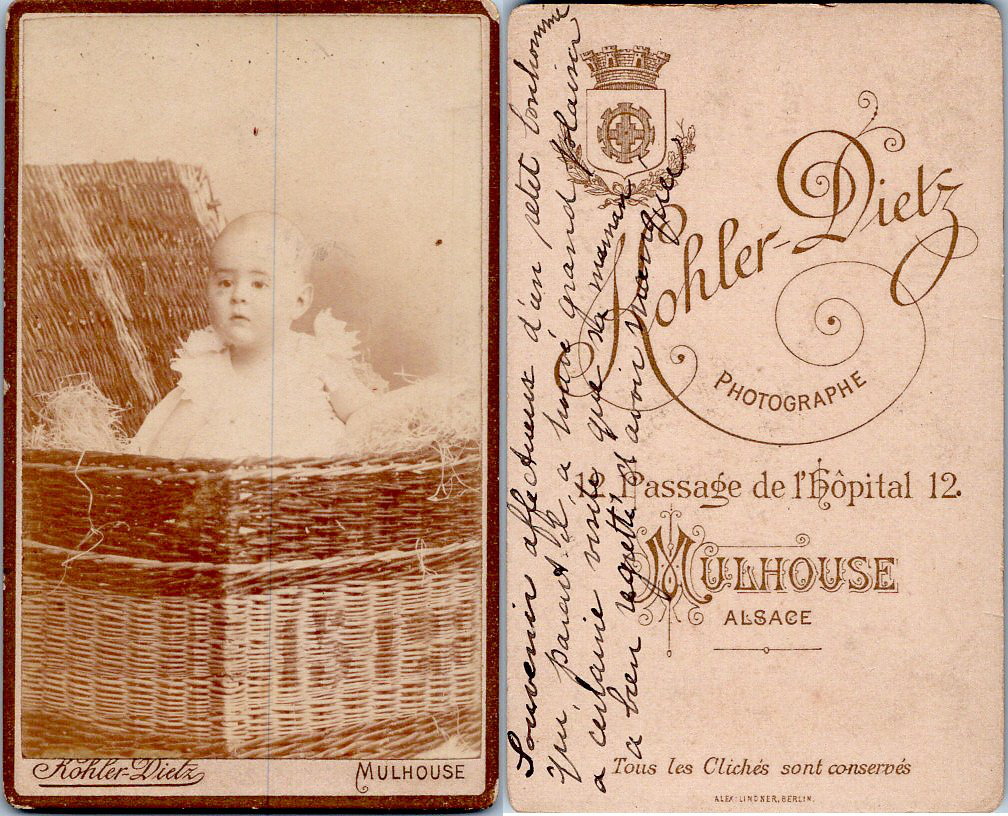 Kohler-Dietz
MULHOUSE
Souvenir affectueux d'un petit bonhomme
qui, parait-il, a trouvé grand plaisir
a certaine visite que sa maman
a bien regretté d'avoir manquée
Kohler-Dietz
PHOTOGRAPHE
12 Passage de l'Hôpital 12.
MULHOUSE
ALSACE
Tous les Clichés sont conservés
ALEX. LINDNER, BERLIN.